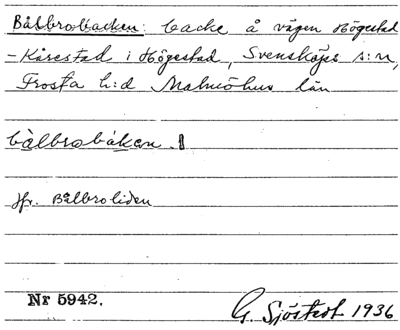 Bålbrobacken: backe å vägen Högestad
-Kårestad i Högestad, Svensköps s:n,
Frosta h:d Malmöhus län
bålbrobákan.
Jfr. Bålbroliden
Nr 5942.
G. Sjöstedt 1936